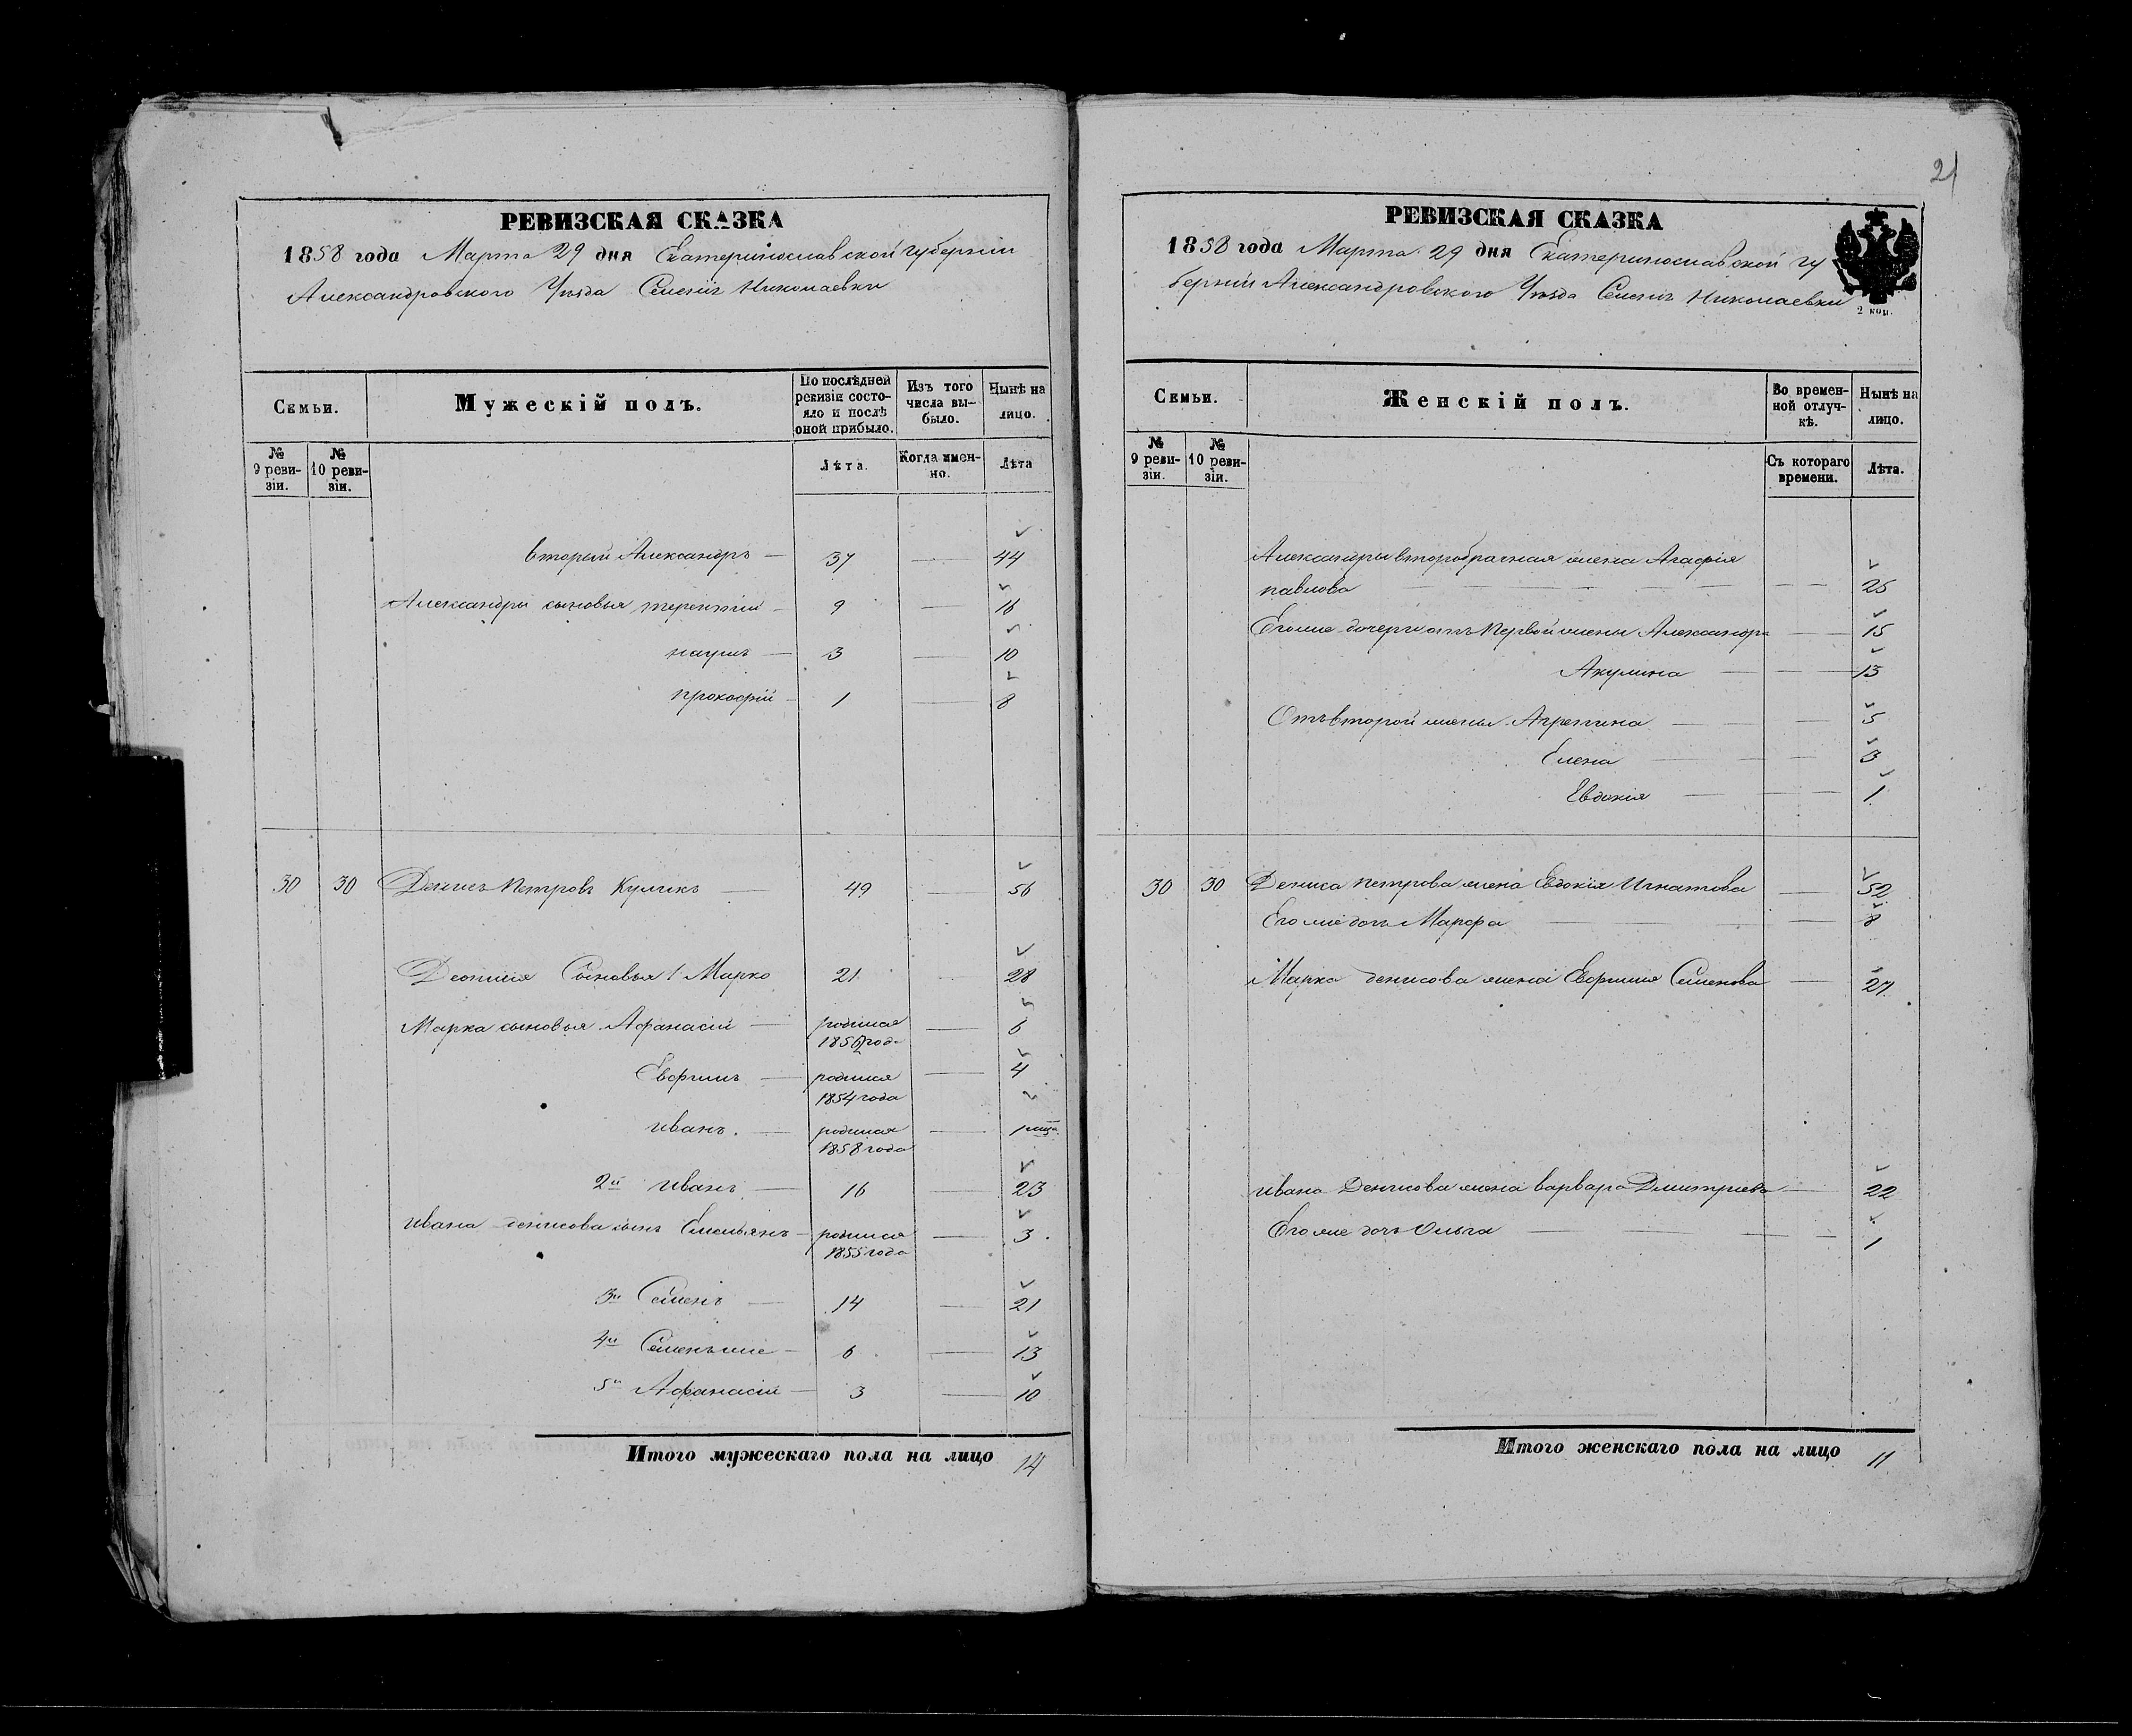 21
РЕВИЗСКАЯ СКАЗКА
1858 года Марта 29 дня Екатеринославской губернии
Александровского Уѣзда Селенія Николаевки
Семьи.
Мужескій полъ.
По послѣдней ревизіи состояло и послѣ оной прибыло.
Изъ того числа выбыло.
Нынѣ на лицо.
№ 9 ревизіи.
№ 10 ревизіи.
Лѣта.
Когда именно.
Лѣта
вторый Александръ — 37 — 44
Александры сыновья терентій — 9 — 16
наумъ — 3 — 10
прокофій — 1 — 8
30 30 Денисъ Петровъ Куликъ — 49 — 56
Деонисія Сыновья 1 Марко 21 28
Марка сыновья Афанасій — родился — 6
185 года
Евфимъ — родился — 4
1854 года
иванъ. — родился — 1
1858 года
2й иванъ — 16 — 23
ивана денисова сынъ Емельянъ — родился — 3
1855 года
3й Семенъ — 14 — 21
4й — 6 — 13
5й Афанасій — 3 — 10
Итого мужескаго пола на лицо 14
РЕВИЗСКАЯ СКАЗКА
1858 года Марта 29 дня Екатеринославской гу
берніи Александровского Уѣзда Селенія Николаевки
2 коп.
Семьи.
Женскій полъ.
Во временной отлучкѣ.
Нынѣ на лицо.
№ 9 ревизіи.
№ 10 ревизіи.
Съ котораго времени.
Лѣта.
Александры второбрачная жена Агафія
павлова — 25
Егоже дочери отъ Первой жены Александра — 15
Акулина — 13
Отъ второй жены Агрепина — 5
Елена — 3
Евдокія — 1
30 30 Дениса петрова жена Евдокія Игнатова — 52
Егоже дочь Марфа — 8
Марка денисова жена Евфимия Семенова — 27
ивана Денисова жена варвара Дмитриева — 22
Егоже дочь Ольга — 1
Итого женскаго пола на лицо 11